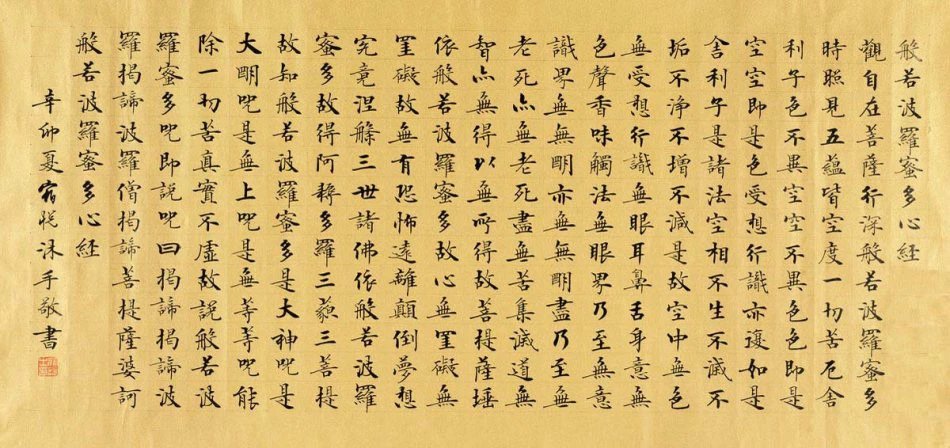 般若波羅蜜多心経
觀自在菩薩行深般若波羅蜜多
時照見五蘊皆空度一切苦厄舍
利子色不異空空不異色色即是
空空即是色受想行識亦復如是
舎利子是諸法空相不生不滅不
垢不浄不增不減是故空中無色
無受想行識無眼耳鼻舌身意無
色聲香味觸法無眼界乃至無意
識界無無明亦無無明盡乃至無
老死亦無老死盡無苦集滅道無
智亦無得以無所得故菩提薩埵
依般若波羅蜜多故心無罣礙無
罣礙故無有恐怖遠離顛倒夢想
究竟涅槃三世諸佛依般若波羅
蜜多故得阿耨多羅三藐三菩提
故知般若波羅蜜多是大神咒是
大明咒是無上咒是無等等咒能
除一切苦真實不虛故說般若波
羅蜜多咒即說咒曰揭諦揭諦波
羅揭諦波羅僧揭諦菩提薩婆訶
般若波羅蜜多心経
辛卯夏宿悅沐手敬書